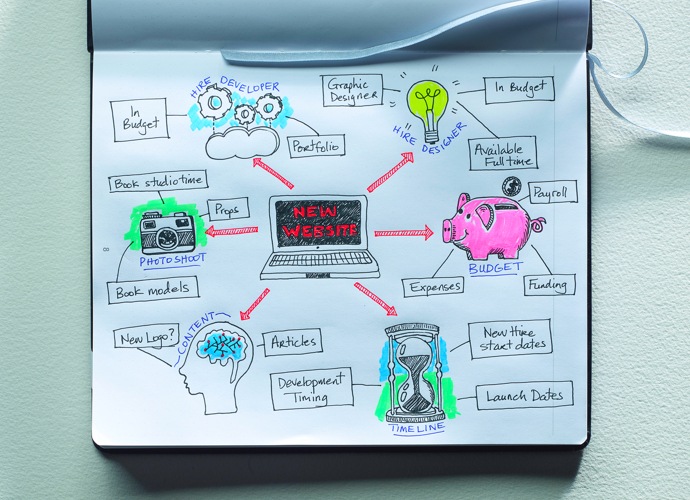 HIRE DEVELOPER
In
Budget
Portfolio
Graphic
Designer
In Budget
HIRE DESIGNER
Available
Full time
Book studio time
Props
PHOTOSHOOT
Book models
NEW
WEBSITE
Payroll
BUDGET
Expenses
Funding
New Logo?
CONTENT
Articles
Development
Timing
New Hire
start dates
Launch Dates
TIMELINE